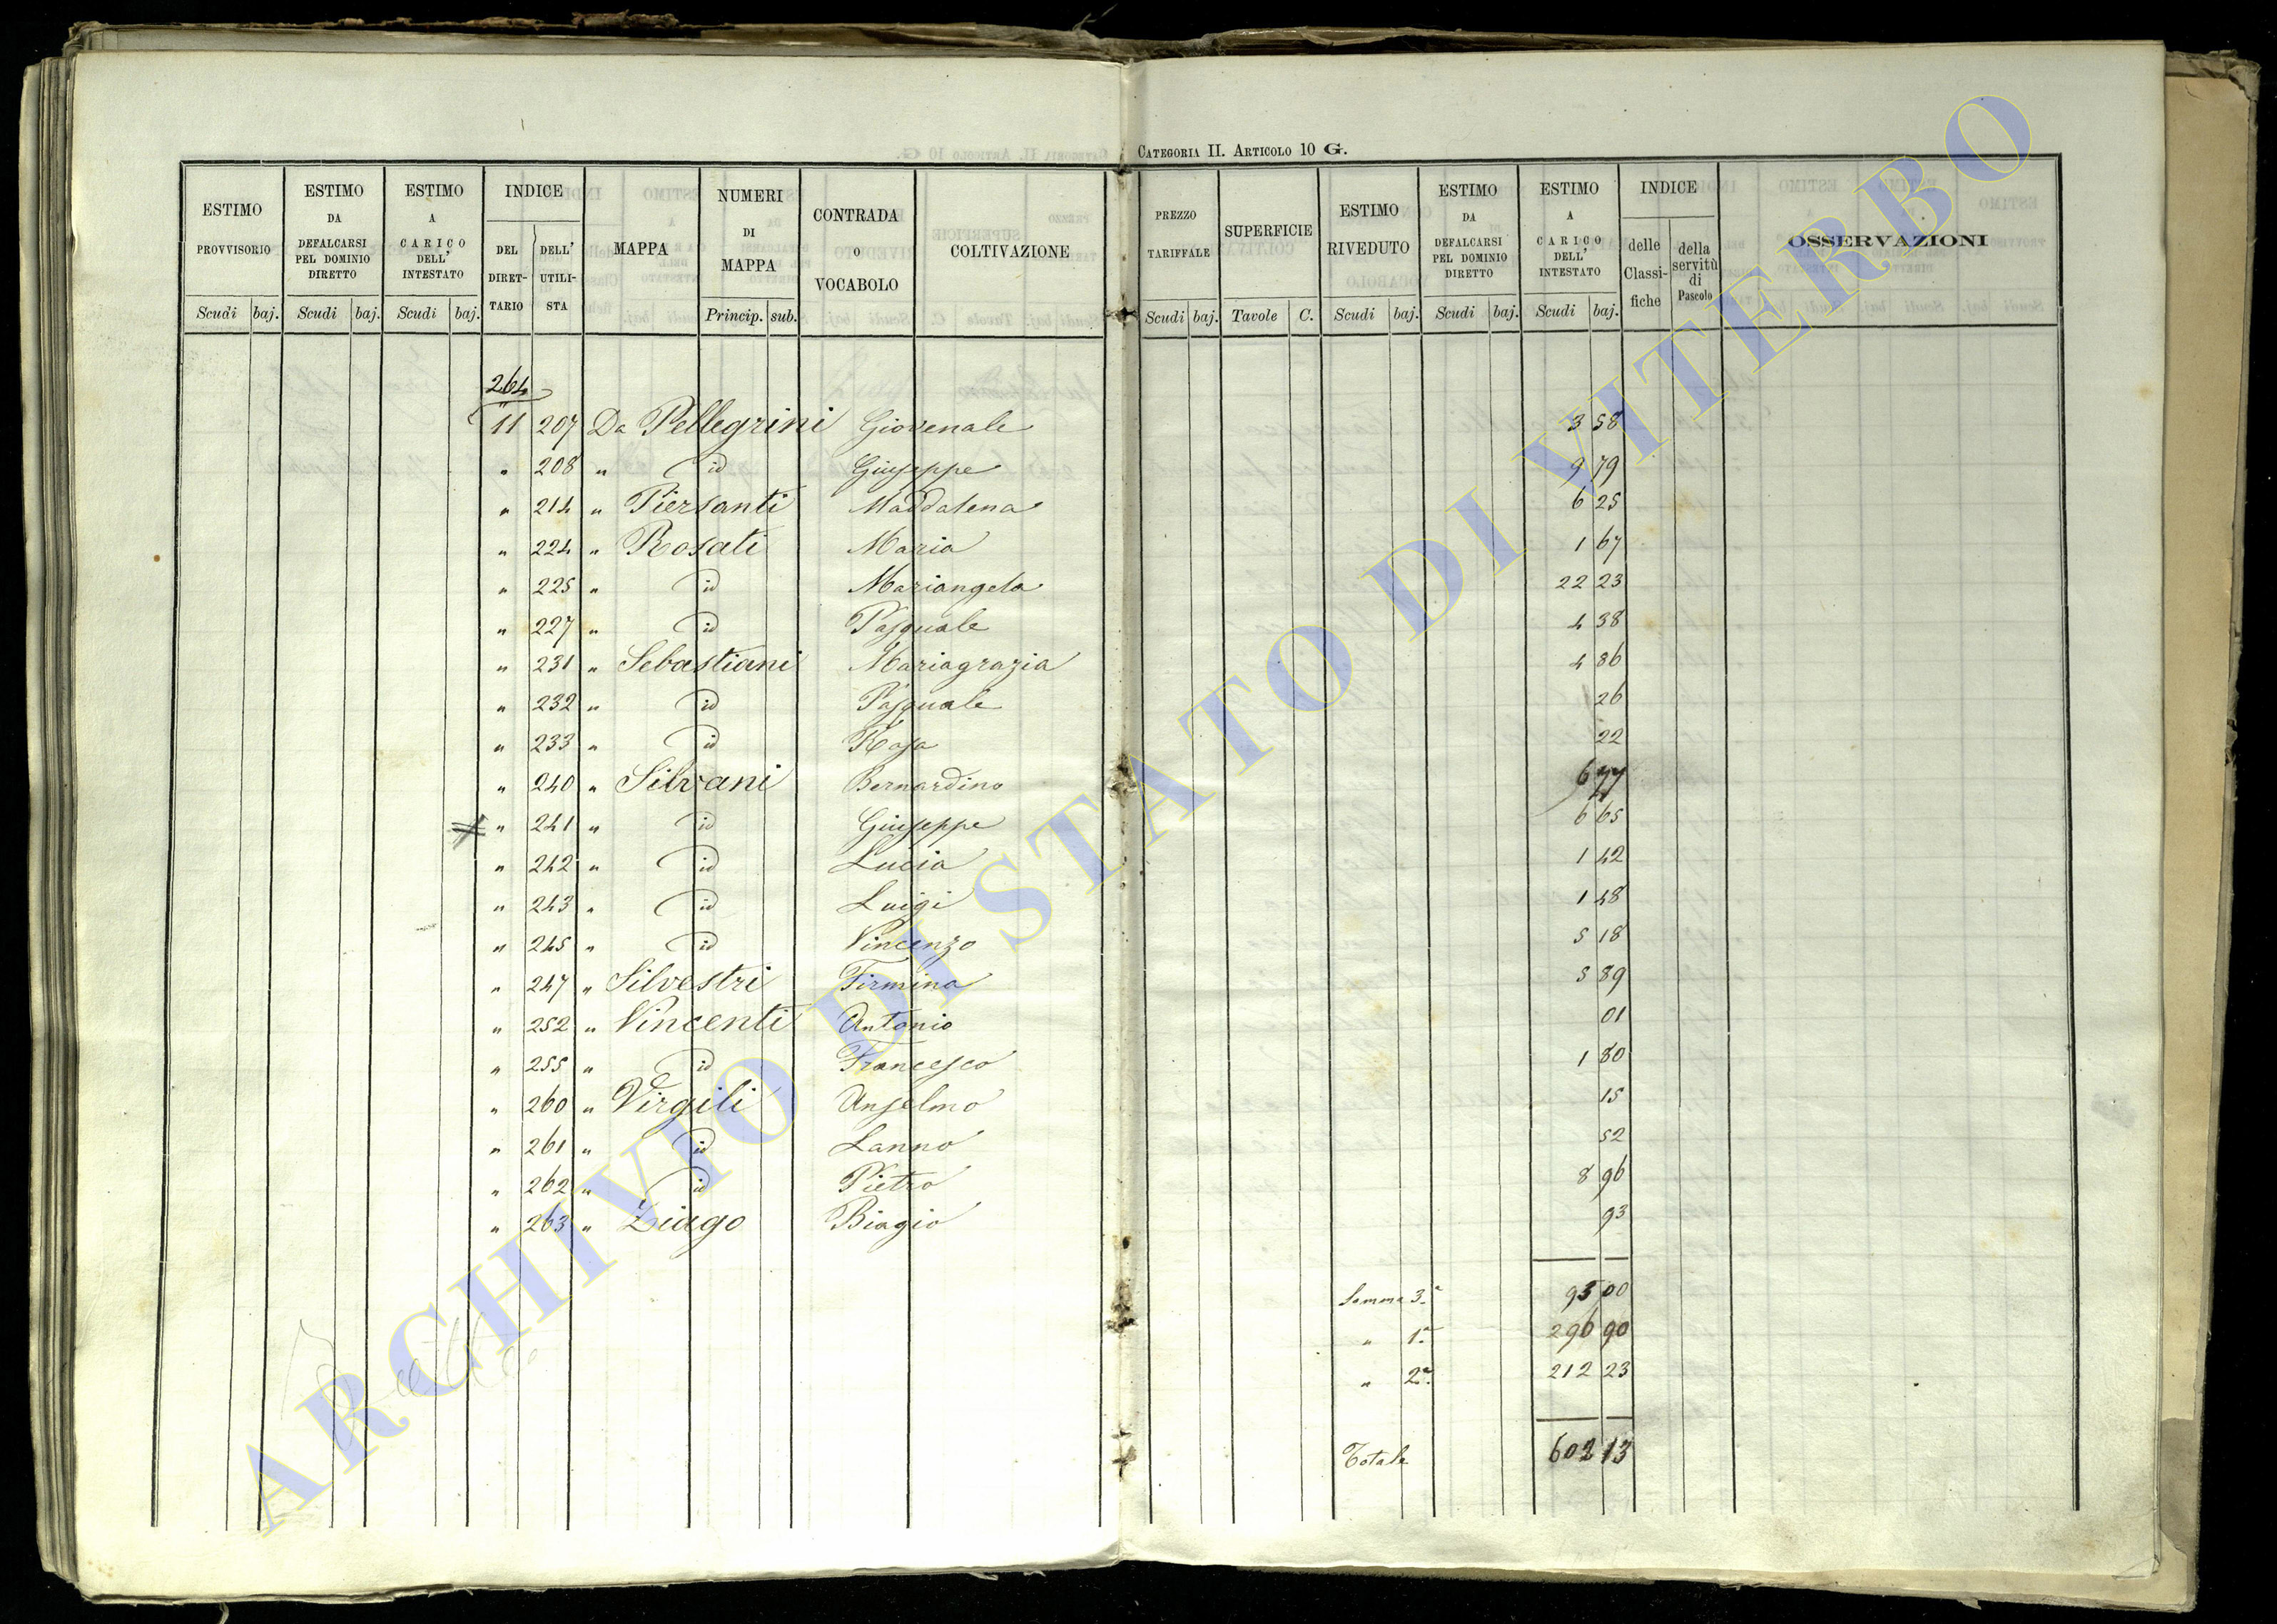 CATEGORIA II. ARTICOLO 10 G.
ESTIMO PROVVISORIO Scudi baj.
ESTIMO DA DEFALCARSI PEL DOMINIO DIRETTO Scudi baj.
ESTIMO A CARICO DELL' INTESTATO Scudi baj.
INDICE DEL DIRET-TARIO DELL' UTILI-STA
MAPPA
NUMERI DI MAPPA Princip. sub.
CONTRADA O VOCABOLO
COLTIVAZIONE
PREZZO TARIFFALE Scudi baj.
SUPERFICIE Tavole C.
ESTIMO RIVEDUTO Scudi baj.
ESTIMO DA DEFALCARSI PEL DOMINIO DIRETTO Scudi baj.
ESTIMO A CARICO DELL' INTESTATO Scudi baj.
INDICE delle Classi-fiche della servitù di Pascolo
OSSERVAZIONI
264
11 207 Da Pellegrini Giovenale 3 58
" 208 " id Giuseppe 9 79
" 214 " Piersanti Maddalena 6 25
" 224 " Rosati Maria 1 67
" 225 " id Mariangela 22 23
" 227 " id Pasquale 4 38
" 231 " Sebastiani Mariagrazia 4 86
" 232 " id Pasquale 26
" 233 " id Rosa 22
" 240 " Silvani Bernardino 6 77
" 241 " id Giuseppe 6 65
" 242 " id Lucia 1 42
" 243 " id Luigi 1 48
" 245 " id Vincenzo 5 18
" 247 " Silvestri Firmina 5 89
" 252 " Vincenti Antonio 01
" 255 " id Francesco 1 80
" 260 " Virgili Anselmo 15
" 261 " id Lanno 52
" 262 " id Pietro 8 96
" 263 " Ziago Biagio 93
Somma 3.a 93 00
" 1.a 296 90
" 2.a 212 23
Totale 602 13
ARCHIVIO DI STATO DI VITERBO